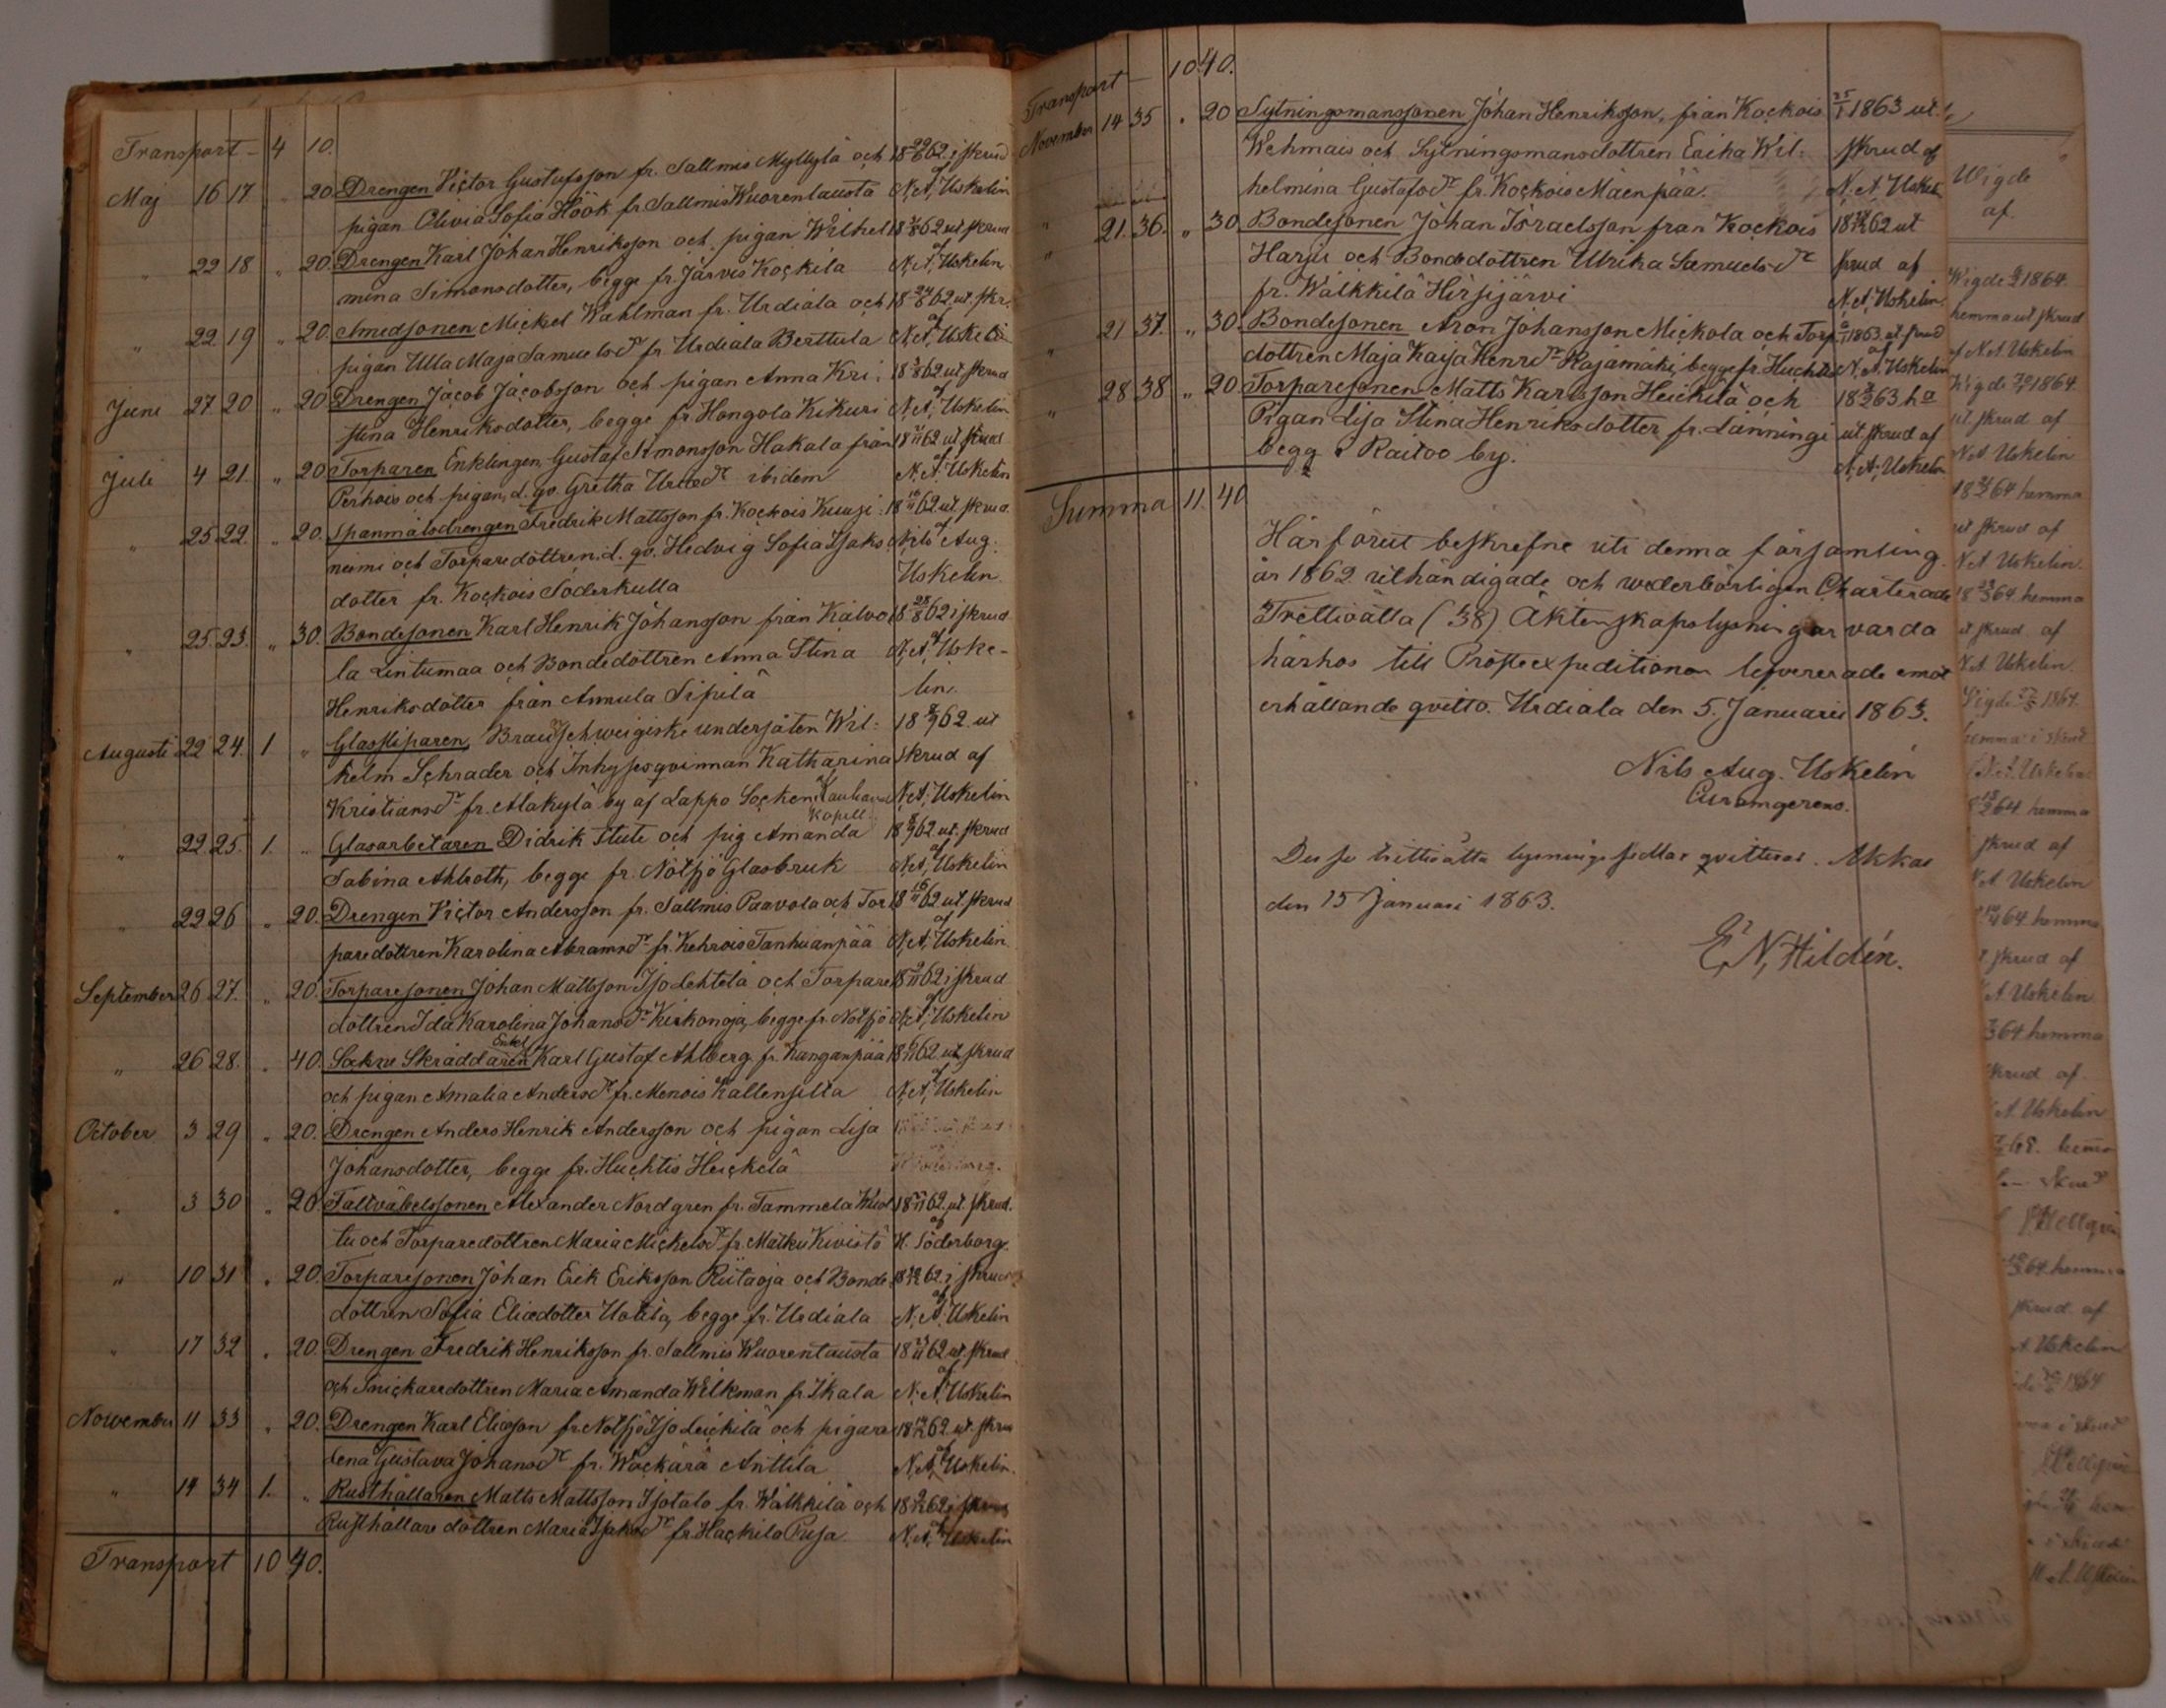 Transport - 4 10.
Maj 16 17 " 20. Drengen Victor Gustafsson fr. Sallmis Myllylä och 18 29/6 62. i skrud
pigan Olivia Sofia Höök fr. Sallmis Wuorentausta af N. A. Uskelin
" 22 18 " 20. Drengen Karl Johan Henriksson och pigan Wilhel 62 ut skrud
mina Simonsdotter, begge fr. Järvis Kockila af N. A. Uskelin
" 22 19 " 20. Smedsonen Mickel Wahlman fr. Urdiala och 18 24/8 62. ut. skr.
pigan Ulla Maja Samuelsdr fr. Urdiala Berttula af N. A. Uskelin
Juni 27 20 " 20 Drengen Jacob Jacobsson och pigan Anna Kri: 62 ut skrud
stina Henriksdotter, begge fr. Hongola Kikuri af N. A. Uskelin
Juli 4 21 " 20 Torparen Enklingen, Gustaf Simonsson Hakala från 62 ut skrud
Perhois och pigan, d. qv. Gretha ibidem af N. A. Uskelin
" 25 22. " 20. Spanmålsdrengen Fredrik Mattsson fr. Kockois Kuusi: 18 16/11 62 ut. skrud.
niemi och Torparedottren, d. qv. Hedvig Sofia Isaks af Nils Aug.
dotter fr. Kockois Söderkulla Uskelin.
" 25. 23. " 30. Bondesonen Karl Henrik Johansson från Kalvo 18 28/8 62 i skrud
la Lintumaa och Bondedottren Anna Stina af N. A. Uske-
Henriksdotter från Annula Sipilä lin.
Augusti 22 24. 1 " Glassliparen, Braunschweigiske undersåten Wil: 62 ut
helm Schrader och Inhysesqvinnan Katharina skrud af
Kristiansdr fr. Alakylä by af Lappo Socken, Kauhava Kapell. N. A. Uskelin
" 22 25. 1. " Glasarbetaren Didrik Stute och pig Amanda 62 ut. skrud
Sabina Ahlroth, begge fr. Notsjö Glasbruk af N. A. Uskelin
" 22 26 " 20. Drengen Victor Andersson fr. Sallmis Paavola och Tor 18 16/11 62 ut. skrud
paredottren Karolina Abramsdr fr. Kehrois Tanhuanpää af N. A. Uskelin
September 26 27. " 20. Torparesonen Johan Mattsson Isolehtela och Torpare 62 i skrud
dottren Ida Karolina Johansdr Kirkonoja, begge fr. Notsjö af N. A. Uskelin
" 26 28. " 40. Sockne Skräddaren Enkel Karl Gustaf Ahlberg fr. Kunganpää 62. ut skrud
och pigan Amalia Andersdr fr. Menois Kallensilla af N. A. Uskelin
October 3 29 " 20. Drengen Anders Henrik Andersson och pigan Lisa
Johansdotter, begge fr. Huchtis Heickelä
" 3 30 " 20. Alexander Nordgren fr. Tammela 62. ut. skrud.
tu och Torparedottren Maria Mickelsdr fr. Matku Kivistö af H. Söderborg.
" 10 31 " 20. Torparesonen Johan Erik Eriksson Riitaoja och Bonde 62. i skrud
dottren Sofia Eliedotter Uotila, begge fr. Urdiala af N. A. Uskelin
" 17 32 " 20. Drengen Fredrik Henriksson fr. Sallmis Wuorentausta 18 23/11 62 ut. skrud
och Snickaredottren Maria Amanda Wilkman fr. Ikala af N. A. Uskelin
November 11 33 " 20. Drengen Karl Eliasson fr. Notsjö Iso Leickilä och pigan 62. ut. skrud
Lena Gustava Johansdr fr. Wackärä Anttila af N. A. Uskelin.
" 14 34 1. " Rusthållaren Matts Mattsson Isotalo fr. Walkkila och 62. i skrud
Rusthållare dottren Maria Isaksdr fr. Hackila Pusa. af N. A. Uskelin
Transport 10 40.
Transport - 10 40.
November 14 35 " 20 Sytningsmanssonen Johan Henriksson, från Kockois 25/1 1863 ut.
Wehmais och Sytningsmansdottren Erika Wil: skrud af
helmina Gustafsdr fr. Kockois Mäenpää. N. A. Uskel.
" 21. 36. " 30. Bondesonen Johan Israelsson från Kockois 62 ut
Harju och Bondedottren Ulrika Samuelsdr skrud af
fr. Walkkila Hirsijärvi N. A. Uskelin.
" 21 37. " 30. Bondesonen Aron Johansson Mickola och Torp. 1863. ut. skrud
dottren Maja Kaija Henrdr Kajamäki, begge fr. Huchtis af N. A. Uskelin
" 28 38 " 20. Torparesonen Matts Karlsson Heickilä och 63 ha
Pigan Lisa Stina Henriksdotter fr. Länningi ut. skrud af
begge Raitoo by. N. A. Uskelin
Summa 11. 40
Härförut beskrefne uti denna församling
år 1862 uthändigade och wederbörligen Charterade
Trettioåtta (38) Äktenskapslysningar varda
härhos till Prostexpeditionen lefvererade emot
erhållande qvitto. Urdiala den 5. Januari 1863.
Nils Aug. Uskelin
Curamgerens.
Desse trettioåtta lysningssedlar qvitteras. Akkas
den 15 Januari 1863.
E. N. Hildén.
Wigde
af.
Wigde 1864.
hemma ut skrud
af N. A. Uskelin
Wigde 1864.
ut skrud af
N. A. Uskelin
64 hemma
ut skrud af
N. A. Uskelin.
64. hemma
ut skrud af
N. A. Uskelin.
Wigde 1864.
hemma i skrud
N. A. Uskelin
64. hemma
skrud af
N. A. Uskelin
64 hemma
skrud af
A. Uskelin
64 hemma
skrud af
A. Uskelin
64. hemma
skrud af
A. Uskelin
1864